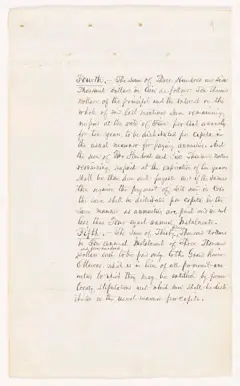 Fourth. — The sum of Three Hundred and six
Thousand dollars in lieu of former
dollars of the principal and the interest on the
whole of said last mentioned sum remaining
unpaid at the rate of five per cent annually
for ten years, to be distributed per capita in
the usual manner for paying annuities. And
the sum of Two Hundred and six Thousand dollars
remaining unpaid at the expiration of ten years
shall be then due and payable, and if the Senate
then require the payment of said sum in
the same shall be distributed per capita in the
same manner as annuities are paid and in not
less than four equal annual Instalments.
Fifth. — The sum of Thirty Thousand dollars
in Ten annual Instalments of Three Thousand
dollars each to be paid only to the Grand River
Ottawas, which is in lieu of all permanent annuities
to which they may be entitled by former
treaty stipulations and which sum shall be distributed
in the usual manner per capita.